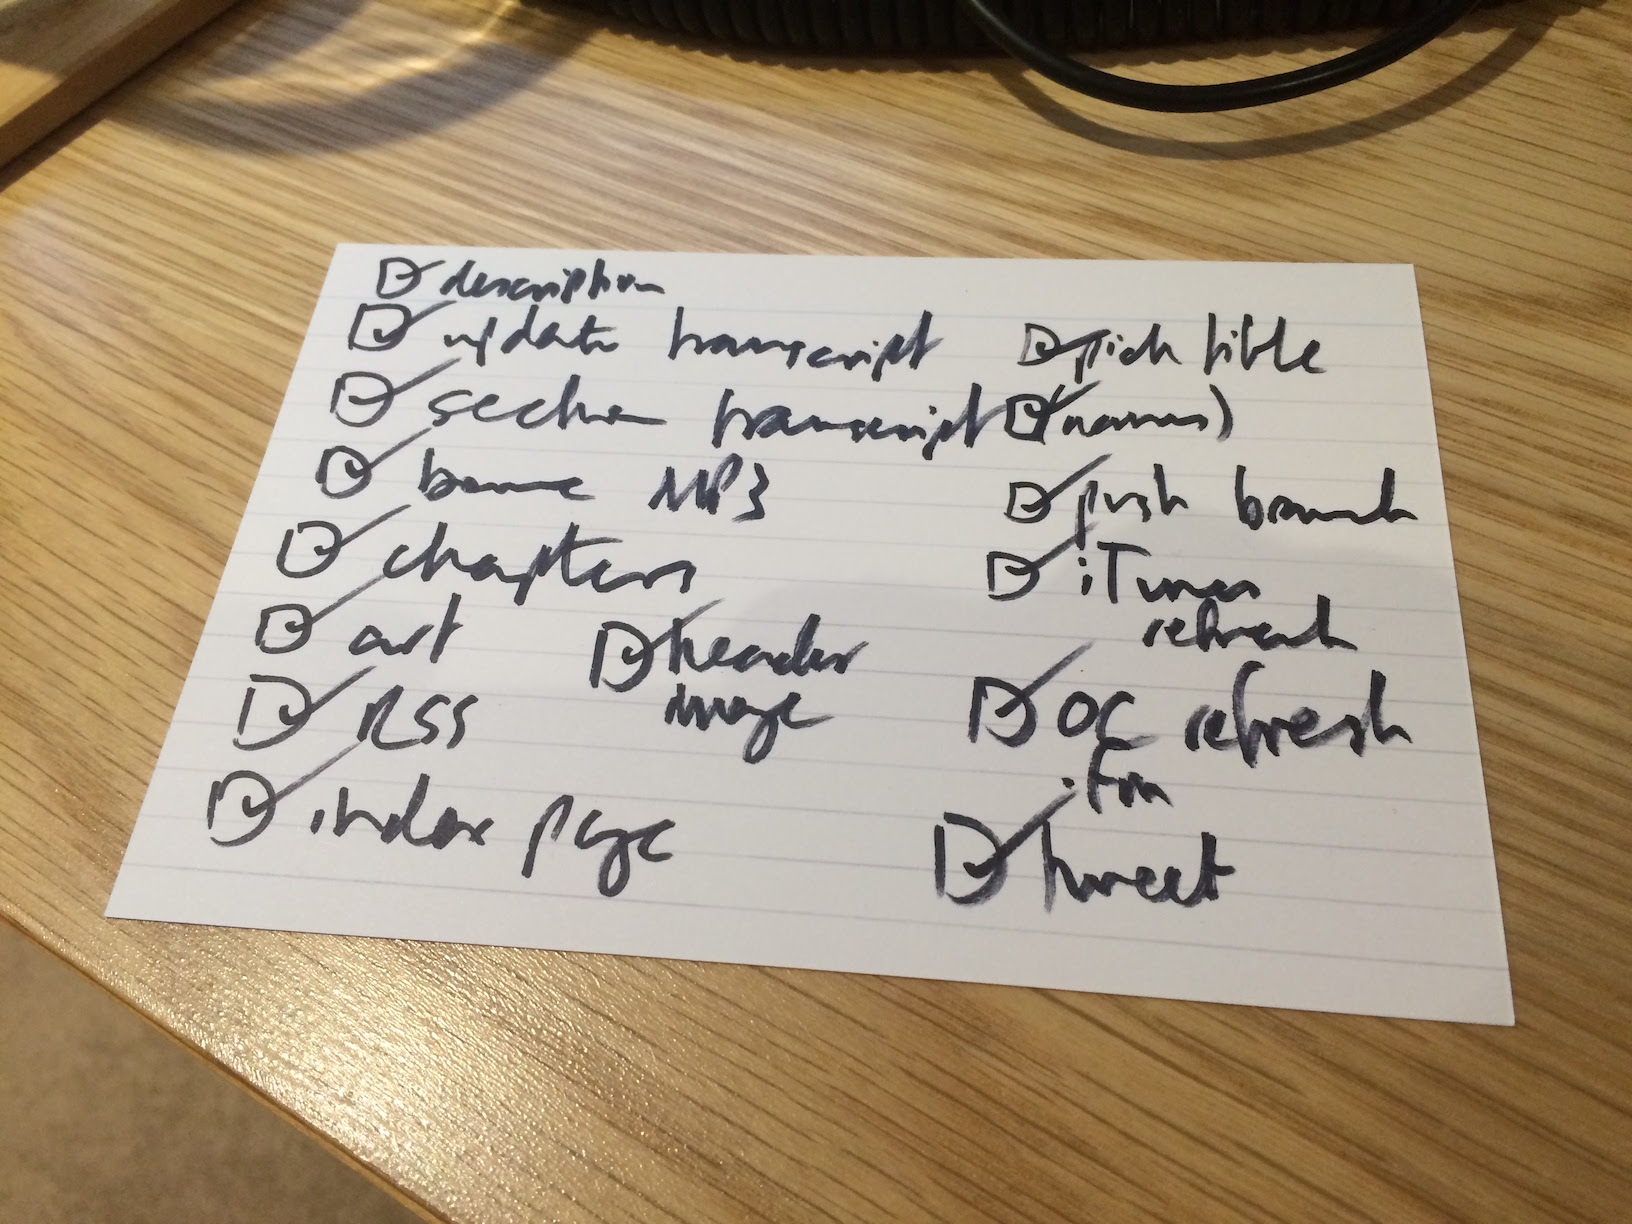 description
update transcript
section transcript
bounce MP3
chapters
art
header
image
RSS
index page
pick title
(names)
push branch
iTunes
refresh
OC refresh
.fm
tweet